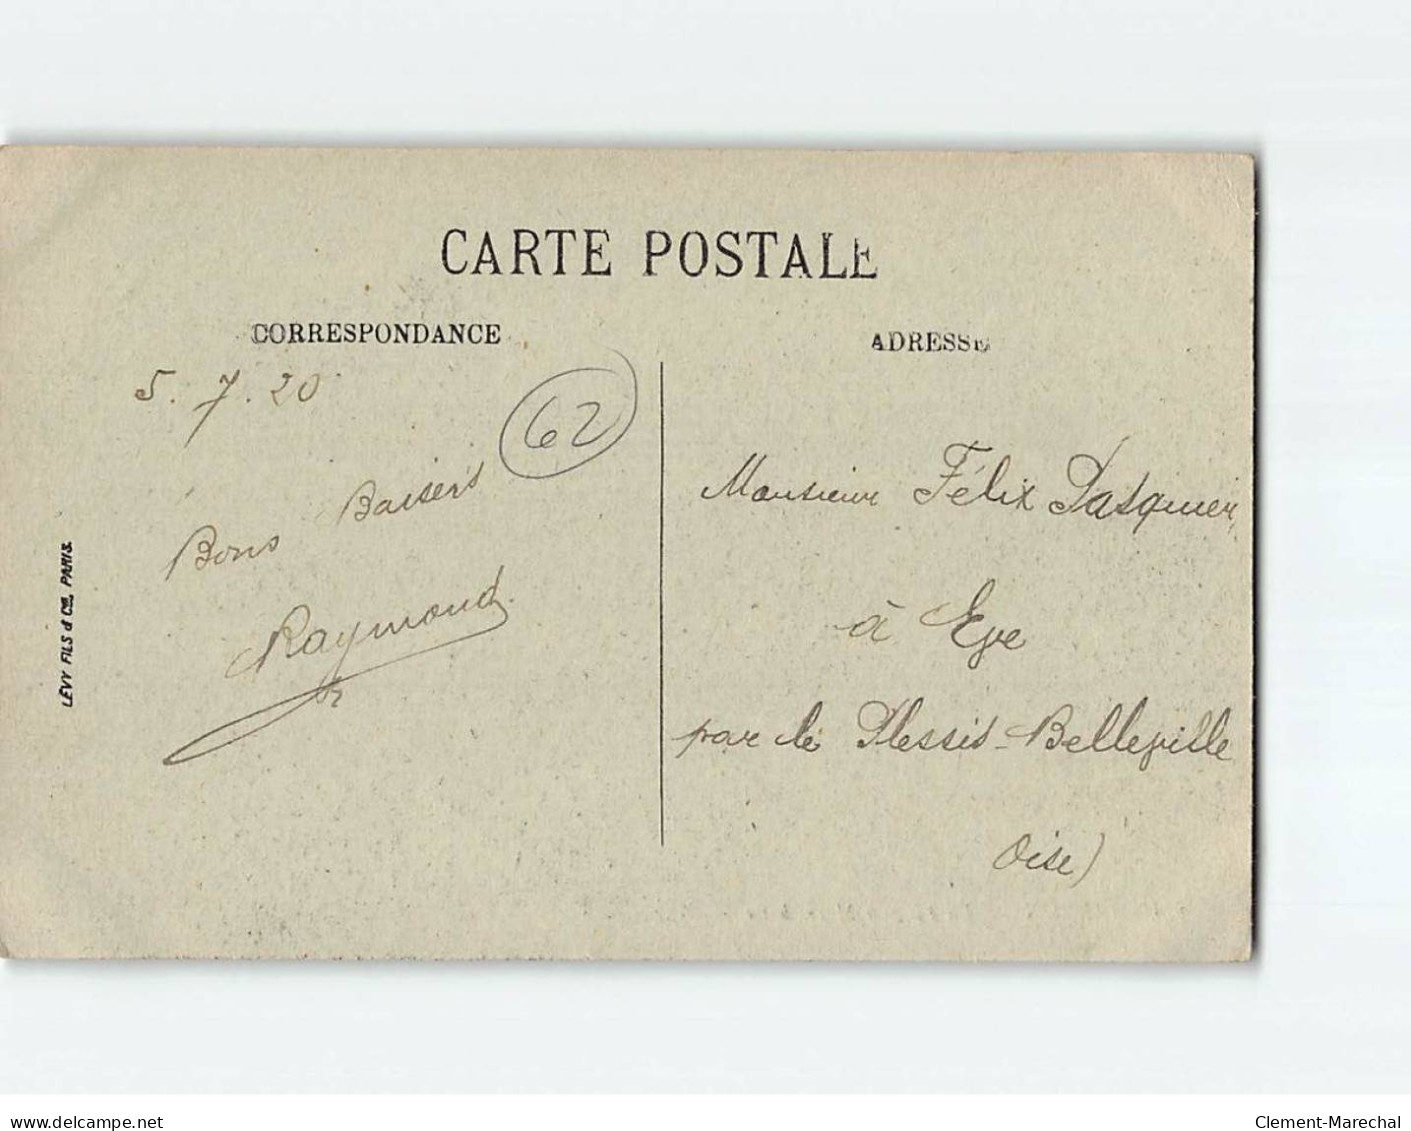 CARTE POSTALE
CORRESPONDANCE
ADRESSE
5. 7. 20
62
Bons Baisers
Raymond.
Monsieur Félix Pasquier
à Eve
par le Plessis-Belleville
Oise)
LÉVY FILS & Cie, PARIS.
www.delcampe.net
Clement-Marechal